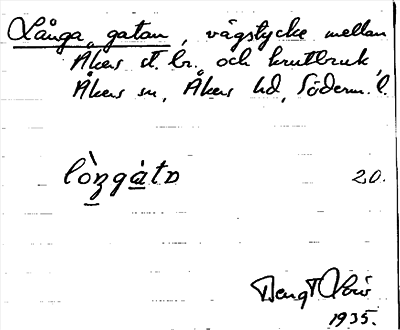 Långa gatan, vägstycke mellan
Åkers st. br. och krutbruk,
Åkers sn, Åkers hd, Söderm. l.
20.
Bengt
1935.